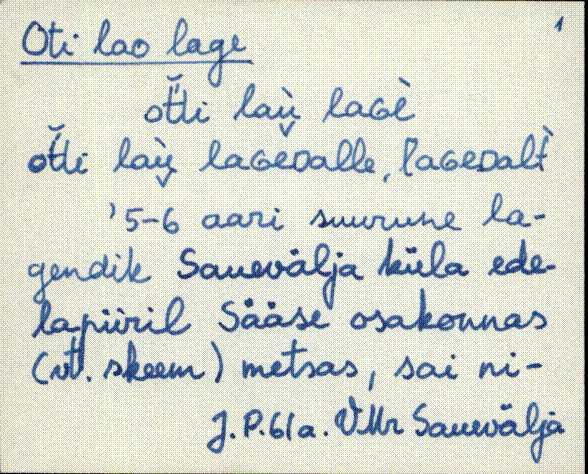 1
Oti lao lage
ot̆t̆i laù̬ laGè
ot̆t̆i laù̬ laGeDalle, laGeDalt̀
'5-6 aari suurune la-
gendik Sauevälja küla ede-
lapiiril Sääse osakonnas
(vt. skeem) metsas, sai ni-
J.P. 61a. VMr Sauevälja